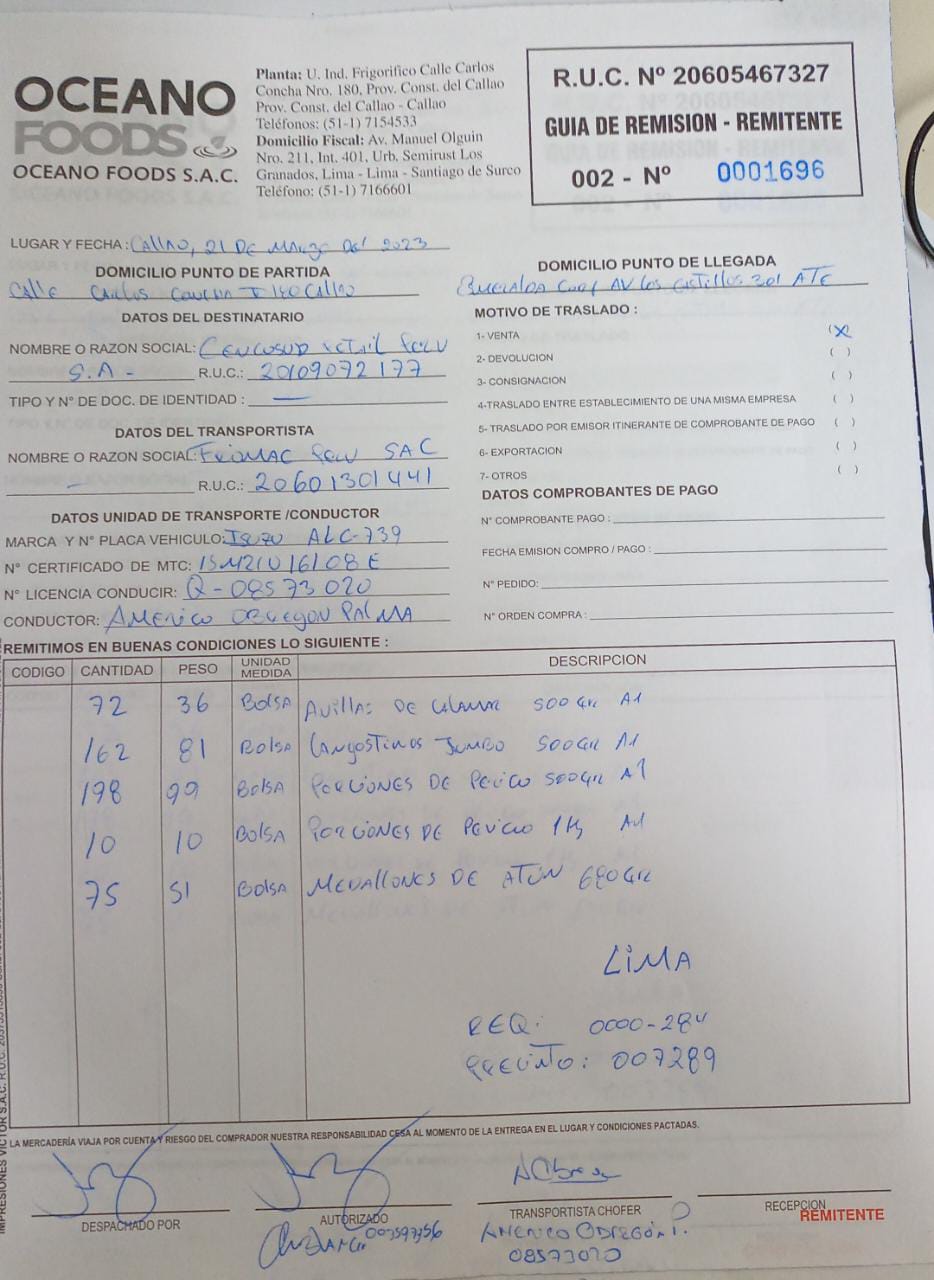 OCEANO
FOODS
OCEANO FOODS S.A.C.
Planta: U. Ind. Frigorifico Calle Carlos
Concha Nro. 180, Prov. Const. del Callao
Prov. Const. del Callao - Callao
Teléfonos: (51-1) 7154533
Domicilio Fiscal: Av. Manuel Olguin
Nro. 211, Int. 401, Urb. Semirust Los
Granados, Lima - Lima - Santiago de Surco
Teléfono: (51-1) 7166601
R.U.C. Nº 20605467327
GUIA DE REMISION - REMITENTE
002 - Nº 0001696
LUGAR Y FECHA: Callao, 21 De Marzo Del 2023
DOMICILIO PUNTO DE PARTIDA
Calle Carlos Concha # 180 Callao
DOMICILIO PUNTO DE LLEGADA
Av Los Castillos 301 ATE
DATOS DEL DESTINATARIO
NOMBRE O RAZON SOCIAL: Cencosud Retail Peru
S.A - R.U.C.: 20109072177
TIPO Y N° DE DOC. DE IDENTIDAD : —
DATOS DEL TRANSPORTISTA
NOMBRE O RAZON SOCIAL: Peru SAC
- R.U.C.: 20601301441
DATOS UNIDAD DE TRANSPORTE /CONDUCTOR
MARCA Y N° PLACA VEHICULO: Isuzu ALC-739
N° CERTIFICADO DE MTC:
N° LICENCIA CONDUCIR: Q-08573020
CONDUCTOR: Americo Obregon Palma
MOTIVO DE TRASLADO :
1- VENTA (X)
2- DEVOLUCION ( )
3- CONSIGNACION ( )
4-TRASLADO ENTRE ESTABLECIMIENTO DE UNA MISMA EMPRESA ( )
5- TRASLADO POR EMISOR ITINERANTE DE COMPROBANTE DE PAGO ( )
6- EXPORTACION ( )
7- OTROS ( )
DATOS COMPROBANTES DE PAGO
N° COMPROBANTE PAGO :
FECHA EMISION COMPRO / PAGO :
N° PEDIDO:
N° ORDEN COMPRA :
REMITIMOS EN BUENAS CONDICIONES LO SIGUIENTE :
CODIGO CANTIDAD PESO UNIDAD MEDIDA DESCRIPCION
72 36 Bolsa Anillas DE Calamar 500 GR A1
162 81 Bolsa Langostinos Jumbo 500GR A1
198 99 Bolsa Porciones DE Perico 500GR A1
10 10 Bolsa Porciones DE Perico 1Kg A1
75 51 Bolsa Medallones DE Atún 680GR
LIMA
REQ: 0000-284
Precinto: 007289
LA MERCADERÍA VIAJA POR CUENTA Y RIESGO DEL COMPRADOR NUESTRA RESPONSABILIDAD CESA AL MOMENTO DE LA ENTREGA EN EL LUGAR Y CONDICIONES PACTADAS.
DESPACHADO POR
AUTORIZADO
TRANSPORTISTA CHOFER
RECEPCION
REMITENTE
Americo Obregón P.
08573020